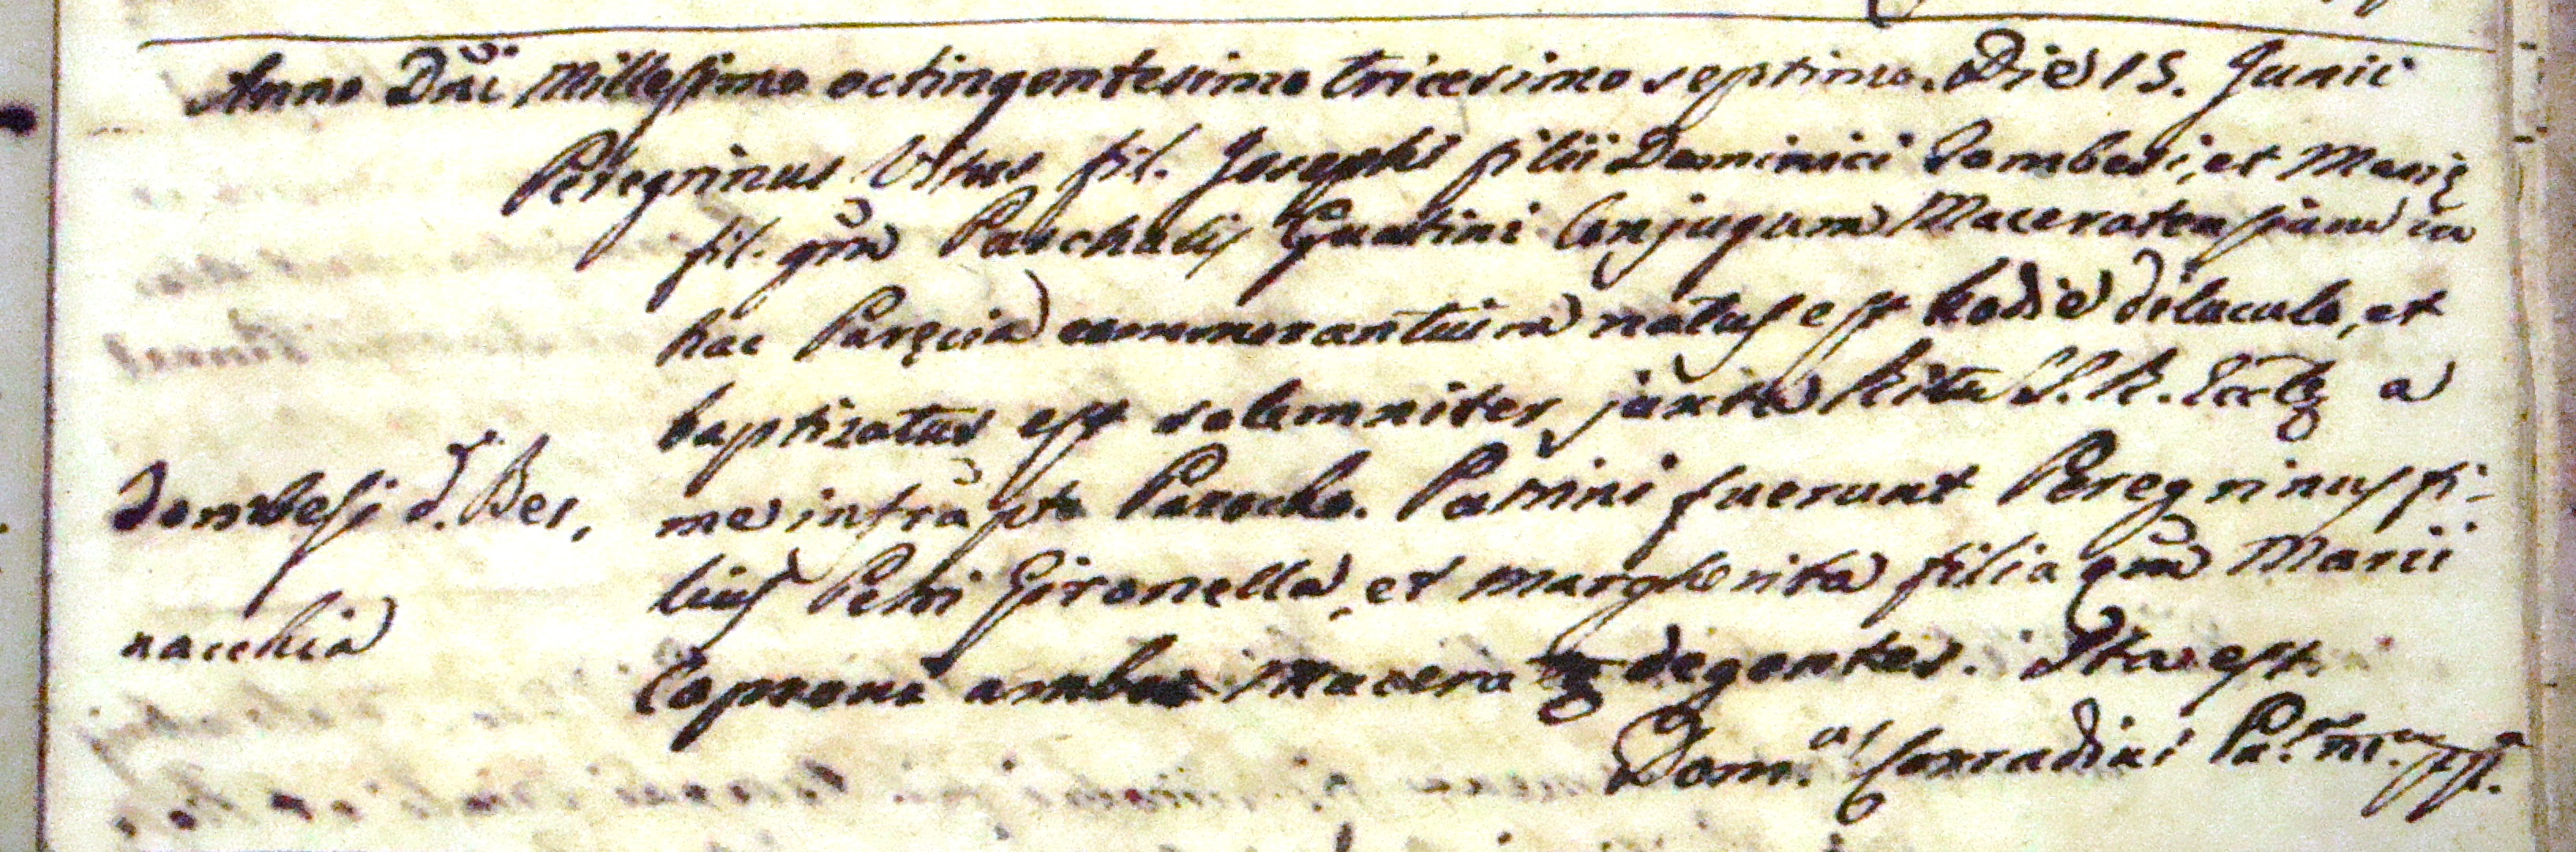 Anno Dñi Millesimo octingentesimo tricesimo septimo. Die 15. Junii
Peregrinus Vitus fil. Josephi filii Dominici Tombesi, et Marię
fil. qm̃ Paschalis Guatini Conjugum Maceraten sium in
hac Paręcia commorantium natus est hodie diluculo, et
baptizatus est solemniter juxta Ritũ S. R. Ecclę a
me infrapto Parocho. Patrini fuerunt Peregrinus fi-
lius Petri Gironella, et Margherita filia qm̃ Marii
Caprone ambo Macerę degentes. Ita est
Dom.cus Corradini Pa.s m.a pp.a
Tombesi d. Ber,
nacchia